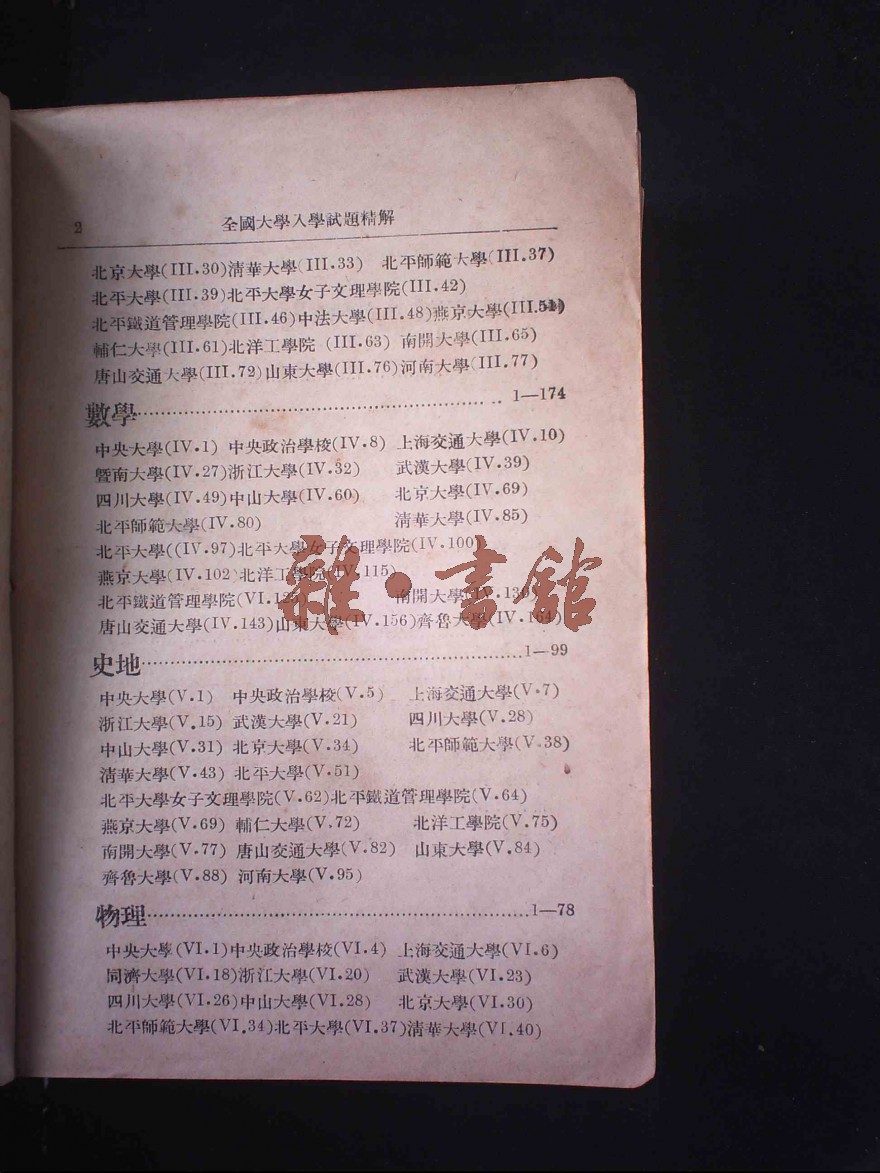 2
全國大學入學試題精解
北京大學(III.30)清華大學(III.33) 北平師範大學(III.37)
北平大學(III.39)北平大學女子文理學院(III.42)
北平鐵道管理學院(III.46)中法大學(III.48)燕京大學(III.51)
輔仁大學(III.61)北洋工學院 (III.63) 南開大學(III.65)
唐山交通大學(III.72)山東大學(III.76)河南大學(III.77)
數學 1—174
中央大學(IV.1) 中央政治學校(IV.8) 上海交通大學(IV.10)
暨南大學(IV.27)浙江大學(IV.32) 武漢大學(IV.39)
四川大學(IV.49)中山大學(IV.60) 北京大學(IV.69)
北平師範大學(IV.80) 清華大學(IV.85)
北平大學((IV.97)北平大學女子文理學院(IV.100)
燕京大學(IV.102)北洋工學院(IV.115)
北平鐵道管理學院(VI.125) 南開大學(IV.130)
唐山交通大學(IV.143)山東大學(IV.156)齊魯大學(IV.164)
雜·書館
史地 1—99
中央大學(V.1) 中央政治學校(V.5) 上海交通大學(V.7)
浙江大學(V.15) 武漢大學(V.21) 四川大學(V.28)
中山大學(V.31) 北京大學(V.34) 北平師範大學(V.38)
清華大學(V.43) 北平大學(V.51)
北平大學女子文理學院(V.62)北平鐵道管理學院(V.64)
燕京大學(V.69) 輔仁大學(V.72) 北洋工學院(V.75)
南開大學(V.77) 唐山交通大學(V.82) 山東大學(V.84)
齊魯大學(V.88) 河南大學(V.95)
物理 1—78
中央大學(VI.1)中央政治學校(VI.4) 上海交通大學(VI.6)
同濟大學(VI.18)浙江大學(VI.20) 武漢大學(VI.23)
四川大學(VI.26)中山大學(VI.28) 北京大學(VI.30)
北平師範大學(VI.34)北平大學(VI.37)清華大學(VI.40)